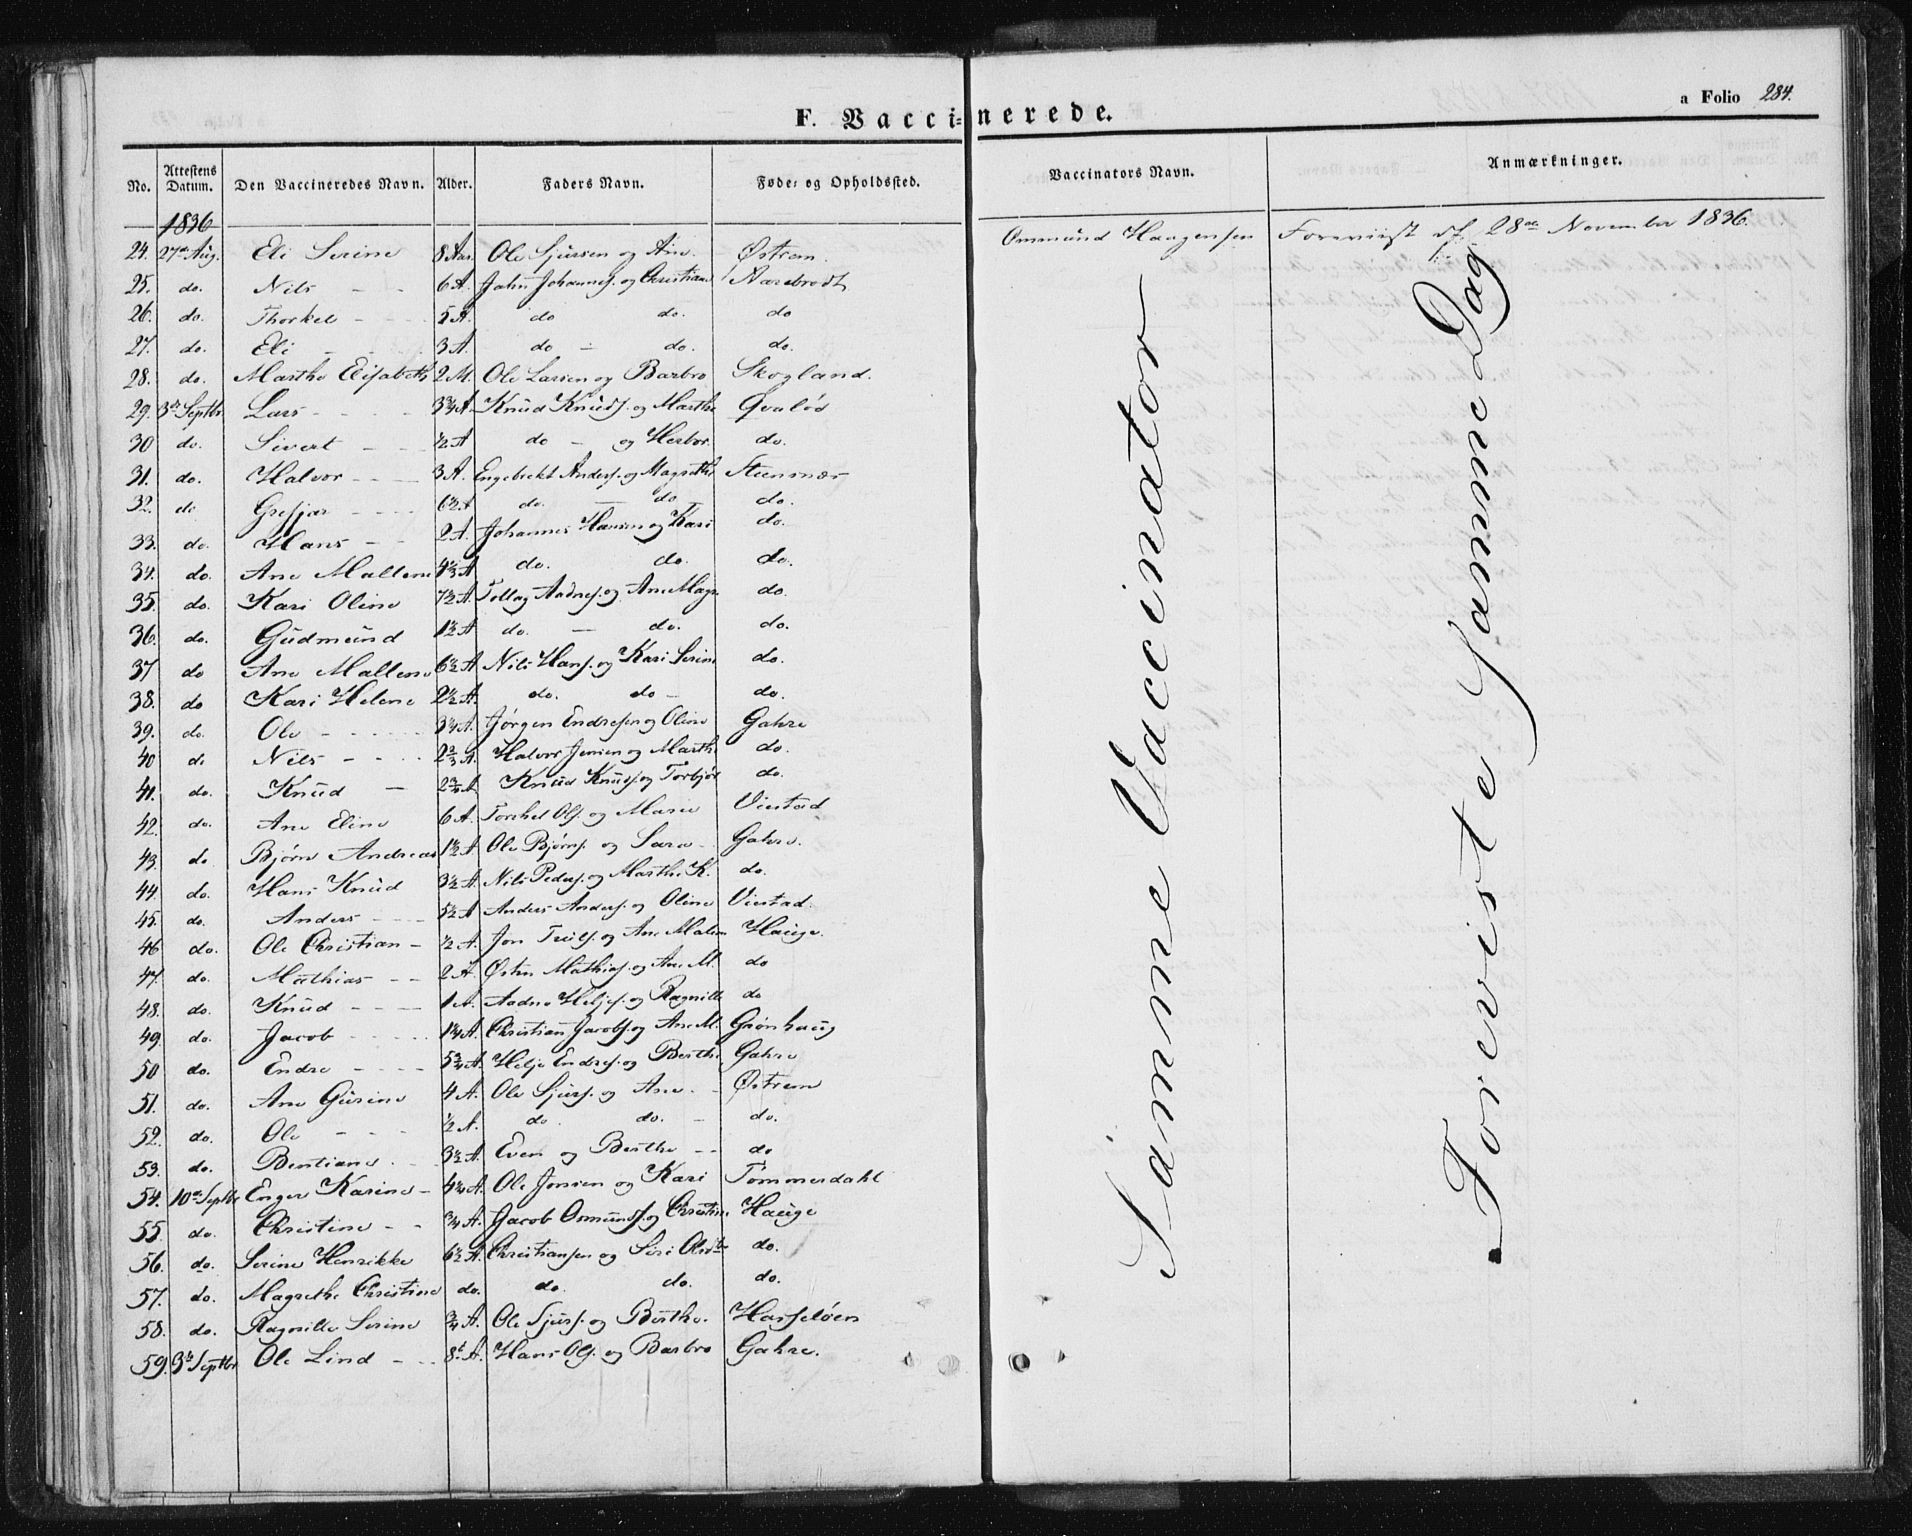 a Folio 284.
F. Vaccinerede.
No. Attestens Datum. Den Vaccineredes Navn. Alder. Faders Navn. Føde- og Opholdssted. Vaccinators Navn. Anmærkninger.
1836
24. 27de Aug. Eli Serine 8 Aar. Ole Sjursen og Ane. Østrem. Ommund Haagensen Foreviist d. 28de November 1836.
25. do. Nils - - 6 A. Jahn Johannes. og Christiane
26. do. Thorkel - - - 5 A. do do. do
27. do. Eli - - - 3 A. do - do. do.
28. do. Marthe Elisabeth 2 M. Ole Larsen og Barbro Skogland.
29. 3de Septbr. Lars - - - 3¾ A. Knud Knuds. og Marthe Qvaløe
30 do. Sivert - - ½ A do - og Herbor. do.
31. do. Halvor - - - 3 A. Engebrekt Anders. og Magrethe Steensnær
32. do Gresjar - - - 6½ A do. — do do.
33. do. Hans - - 2 A. Johannes Hansen og Kari do.
34. do. Ane Mallene A do. do. do.
35. do. Kari Oline 7½ A. Tollag Aadnes. og Ane Magr. do.
36. do. Gudmund 1½ A do. — do. do.
37 do Ane Mallene 6½ A. Nils Hans. og Kari Serine do.
38. do Kari Helene 2½ A. do. do - do.
39. do. Ole - - - - 3¼ A. Jørgen Endresen og Oline Gahre
40 do Nils - - - - 2⅔ A. Halvor Jensen og Marthe do.
41. do. Knud — 2¾ A Knud Knuds. og Torbjør do.
42. do. Ane Eline 6 A. Torkel Ols. og Marie Viestad
43. do Bjørn Andreas 1½ A Ole Bjørns. og Sara - Gahre.
44. do. Hans Knud 3½ A. Nils Peders. og Marthe K. do.
45. do. Anders - - - 5½ A Anders Anders. og Oline Viestad.
46 do. Ole Christian - ½ A. Jon Truls. og Ane Malen Hauge.
47. do. Mathias - - 2 A. Østen Mathias. og Ane M. do
48. do. Knud - - - 1 A. Aadne Heljes. og Ragnille do
49. do. Jacob - - - - 1¼ A. Christian Jacobs. og Ane M. Grønhaug
50 do. Endre - - - - 5¾ A. Helje Endres. og Berthe Gahre
51. do. Ane Gurine 4 A. Ole Sjurs. og Ane - - Østrem
52. do. Ole - - - ½ A. do. do. - do.
53. do. Bertiane. - 3½ A. Even og Berthe - - do
54. 10de Septbr Enger Karine - 4¼ A. Ole Jensen og Kari Tømmerdahl
55. do. Christine - - ¾ A. Jacob Ommunds. og Christine Hauge
56. do. Serine Henrikke 6½ A. Christiansen og Siri do.
57. do. Magrethe Christine do. do. do. do.
58. do. Ragnille Serine ¾ A. Ole Sjurs. og Berthe. Hasseløen
59. 3de Septbr Ole Lind - - - A. Hans Ols. og Barbro Gahre.
Samme Vaccinator
Foreviste Samme Dag